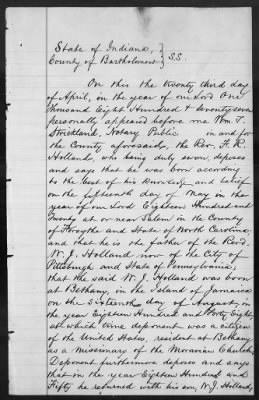 State of Indiana,
County of Bartholomew } S.S.
On this the twenty third day
of April, in the year of our Lord One
thousand Eight Hundred & seventy seven
personally appeared before me Wm. T.
Strickland, Notary Public in and for
the County aforesaid, the Rev. F. R.
Holland, who being duly sworn, deposes
and says that he was born according
to the best of his knowledge and belief
on the fifteenth day of May in the
year of our Lord Eighteen Hundred and
Twenty at or near Salem in the County
of Forsythe and State of North Carolina,
and that he is the father of the Revd.
W. J. Holland now of the City of
Pittsburgh and State of Pennsylvania;
that the said W. J. Holland was born
at Bethany, in the Island of Jamaica
on the Sixteenth day of August in
the year Eighteen Hundred and Forty Eight,
at which time deponent was a citizen
of the United States, resident at Bethany
as a missionary of the Moravian Church.
Deponent furthermore deposes and says
that in the year Eighteen Hundred and
Fifty he returned with his son, W. J. Holland,